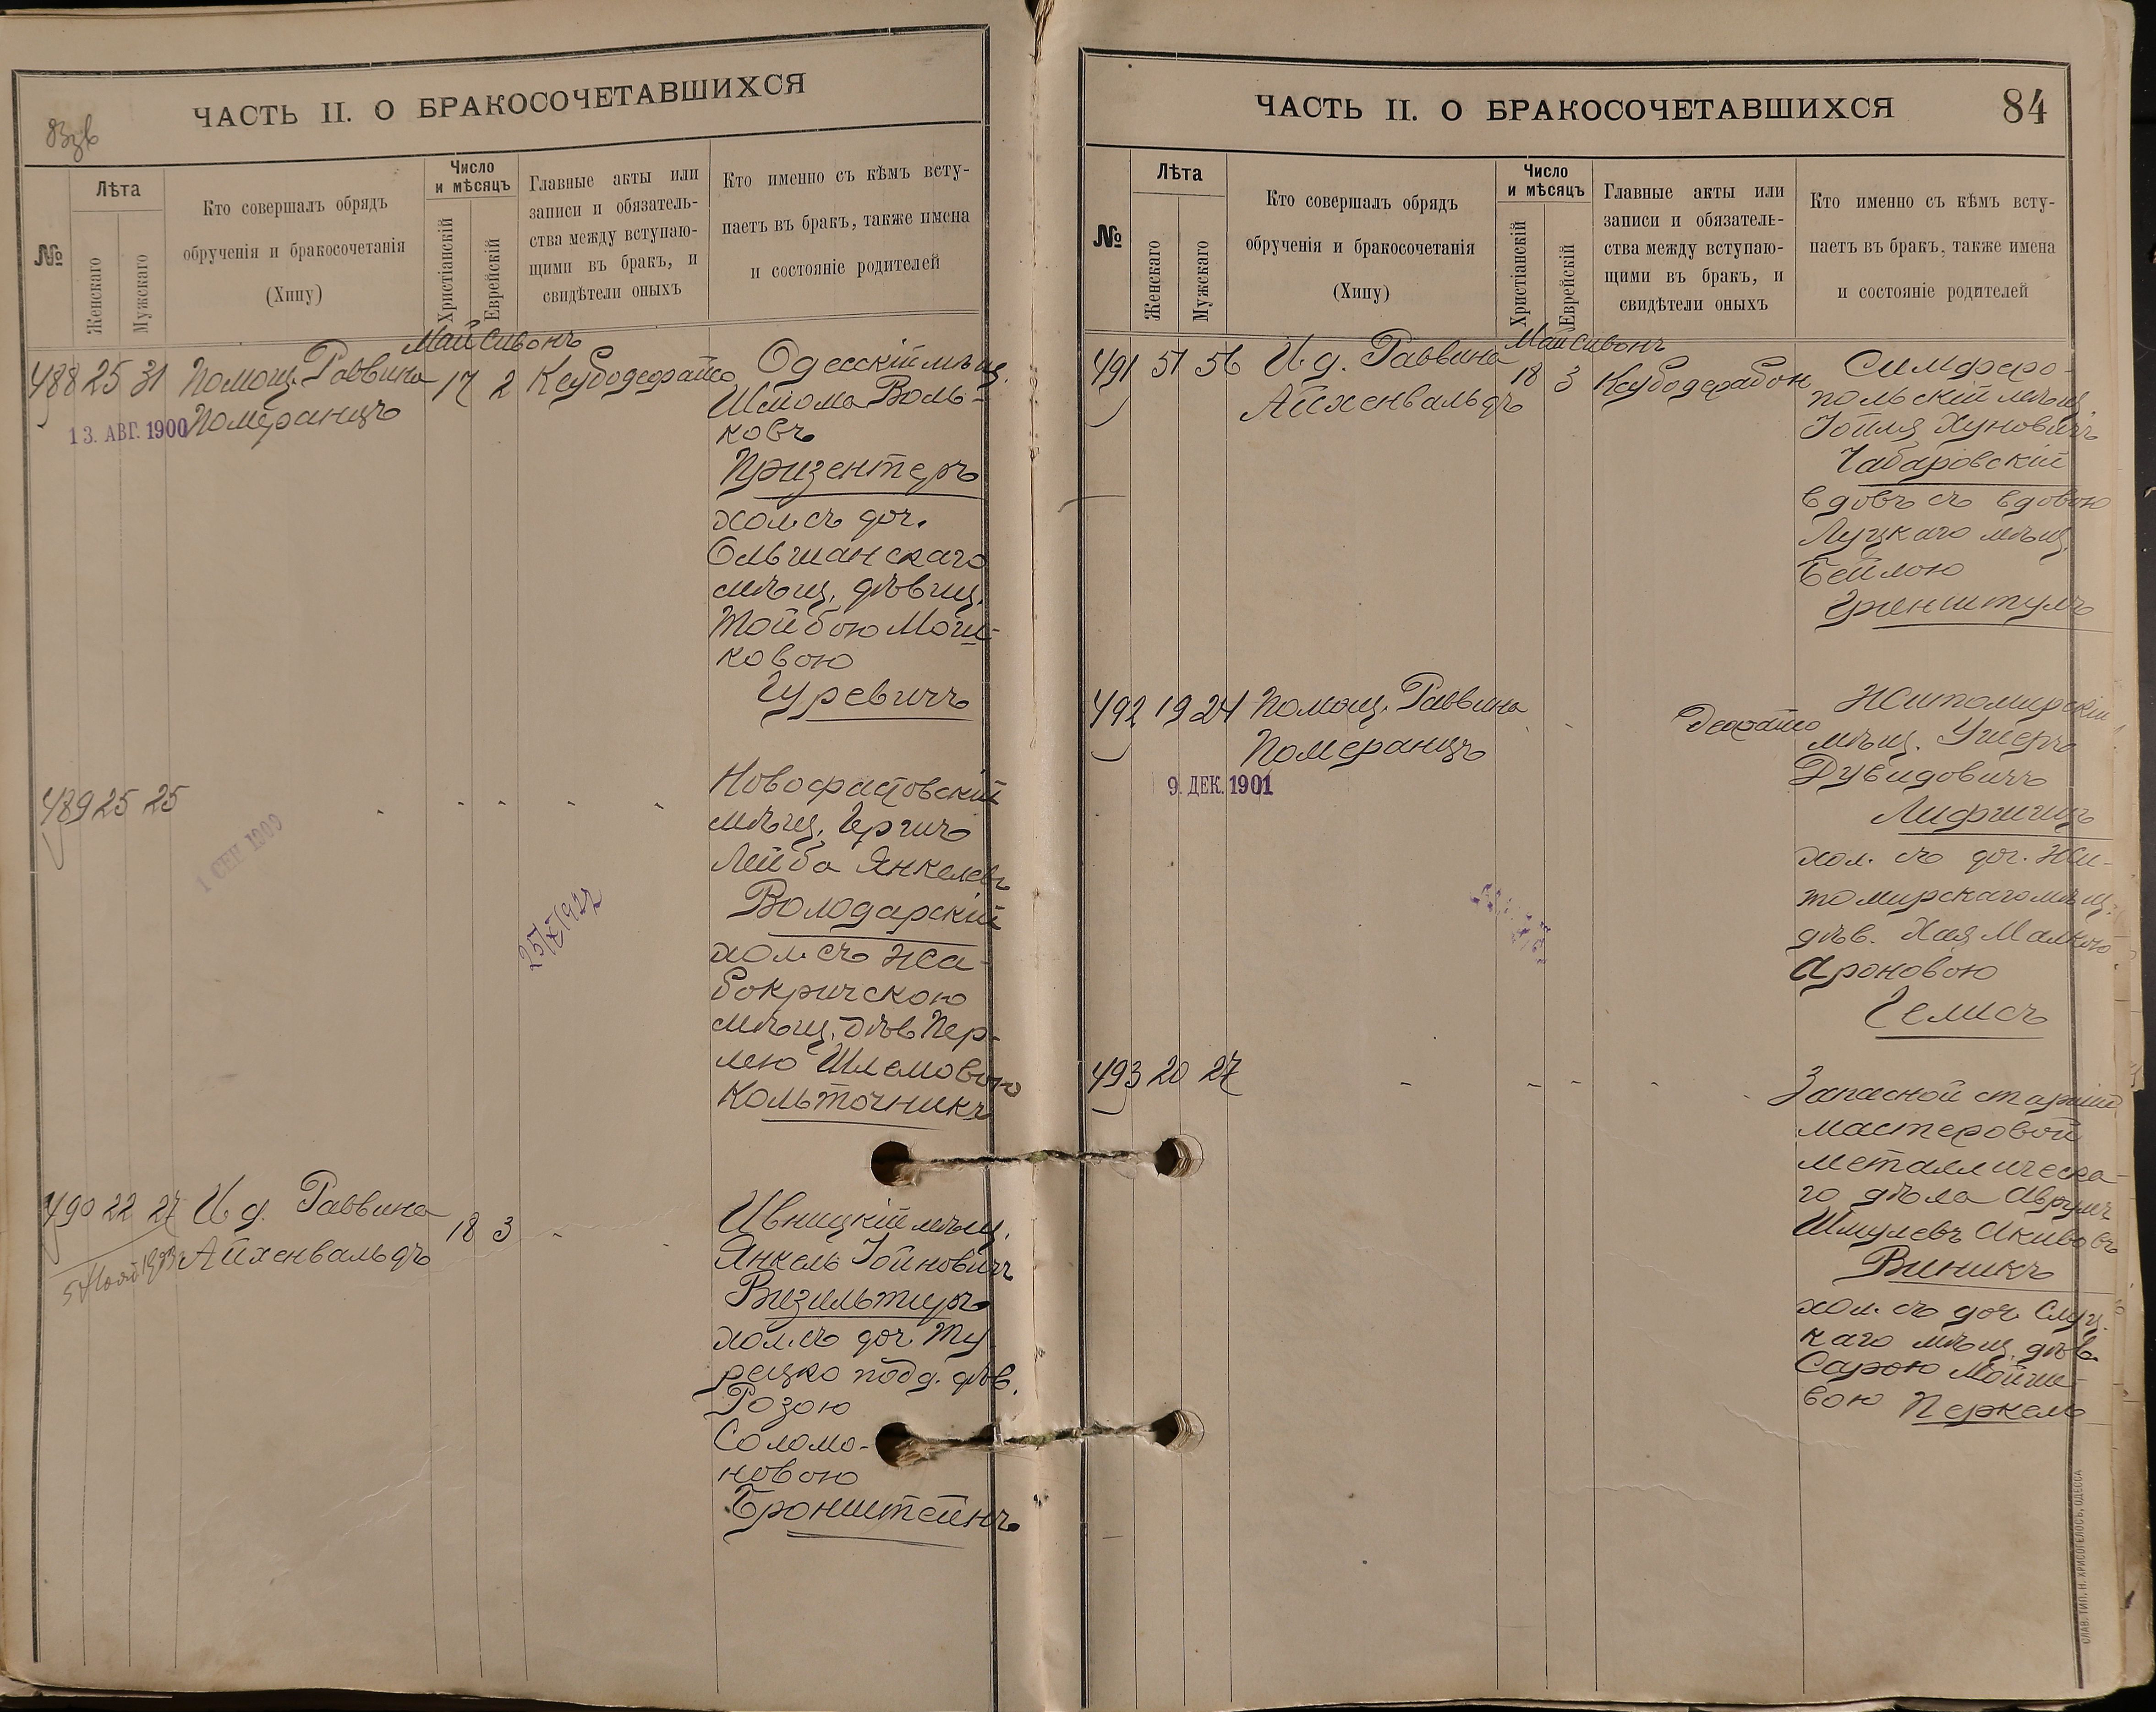 ЧАСТЬ II. О БРАКОСОЧЕТАВШИХСЯ
№
Лѣта
Женскаго
Мужскаго
Кто совершалъ обрядъ
обрученія и бракосочетанія
(Хипу)
Число
и мѣсяцъ
Христіанскій
Еврейскій
Главные акты или
записи и обязатель-
ства между вступаю-
щими въ бракъ, и
свидѣтели оныхъ
Кто именно съ кѣмъ всту-
паетъ въ бракъ, также имена
и состояніе родителей
Май Сивонъ
488 25 31 Помощ. Раввина 17 2
Померанцъ
13. АВГ. 1900
Одесскій мѣщ.
Шлома Воль-
ковъ
Призентеръ
хол. съ доч.
Ольшанскаго
мѣщ. дѣвиц.
Тойбою Мош-
ковою
Гуревичъ
489 25 25
1 СЕН 1900
Новофастовскій
мѣщ. Гершъ
Лейба Янкелевъ
Володарскій
хол. съ Жа-
бокричскою
мѣщ. дѣв. Пер-
лею Шлемовою
Кольточникъ
490 22 27 И. д. Раввина 18 3
Айхенвальдъ
Ивницкій мѣщ.
Янкель Іойновичъ
Визильтиръ
хол. съ доч. Ту
рецко подд. дѣв.
Розою
Соломо-
новою
Бронштейнъ
ЧАСТЬ II. О БРАКОСОЧЕТАВШИХСЯ
84
№
Лѣта
Женскаго
Мужскаго
Кто совершалъ обрядъ
обрученія и бракосочетанія
(Хипу)
Число
и мѣсяцъ
Христіанскій
Еврейскій
Главные акты или
записи и обязатель-
ства между вступаю-
щими въ бракъ, и
свидѣтели оныхъ
Кто именно съ кѣмъ всту-
паетъ въ бракъ, также имена
и состояніе родителей
Май Сивонъ
491 51 56 И. д. Раввина 18 3
Айхенвальдъ
Симферо-
польскій мѣщ.
Іойля Хуновичъ
Чабаровскій
вдовъ съ вдовою
Луцкаго мѣщ.
Бейлою
Гринштулъ
492 19 24 Помощ. Раввина
Померанцъ
9. ДЕК. 1901
Житомирскій
мѣщ. Ушеръ
Дувидовичъ
Лифшицъ
хол. съ доч. Жи-
томирскаго мѣщ.
дѣв. Хая Малкою
Ароновою
Гелисъ
493 20 27
Запасной старшій
мастеровой
металлическа-
го дѣла Аврумъ
Шмулевъ Акивовъ
Виникъ
хол. съ доч. Слуц
каго мѣщ. дѣв.
Сарою Мойше-
вою Перкель
СЛАВ. ТИП. Н. ХРИСОГЕЛОСЪ, ОДЕССА